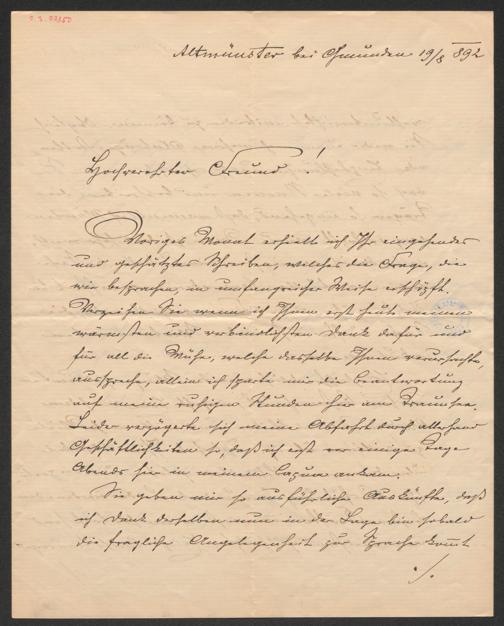 Altmünster bei Gmunden 19/8 892
Hochverehrter Freund!
Vorigen Monat erhielt ich Ihr eingehendes
und geschätztes Schreiben, welches die Frage, die
wir besprachen, in umfangreicher Weise erschöpft.
Verzeihen Sie wenn ich Ihnen erst heute meinen
wärmsten und verbindlichsten Dank dafür und
für all die Mühe, welche dasselbe Ihnen verursachte,
ausspreche, allein ich sparte mir die Beantwortung
auf meine ruhigen Stunden hier am Traunsee.
Leider verzögerte sich meine Abfahrt durch allerhand
Geschäftlichkeiten so, daß ich erst vor einigen Tagen
Abends hier in meinem Capua ankam.
Sie geben mir so ausführliche Auskünfte, daß
ich Dank derselben nun in der Lage bin sobald
die fragliche Angelegenheit zur Sprache kommt
./.